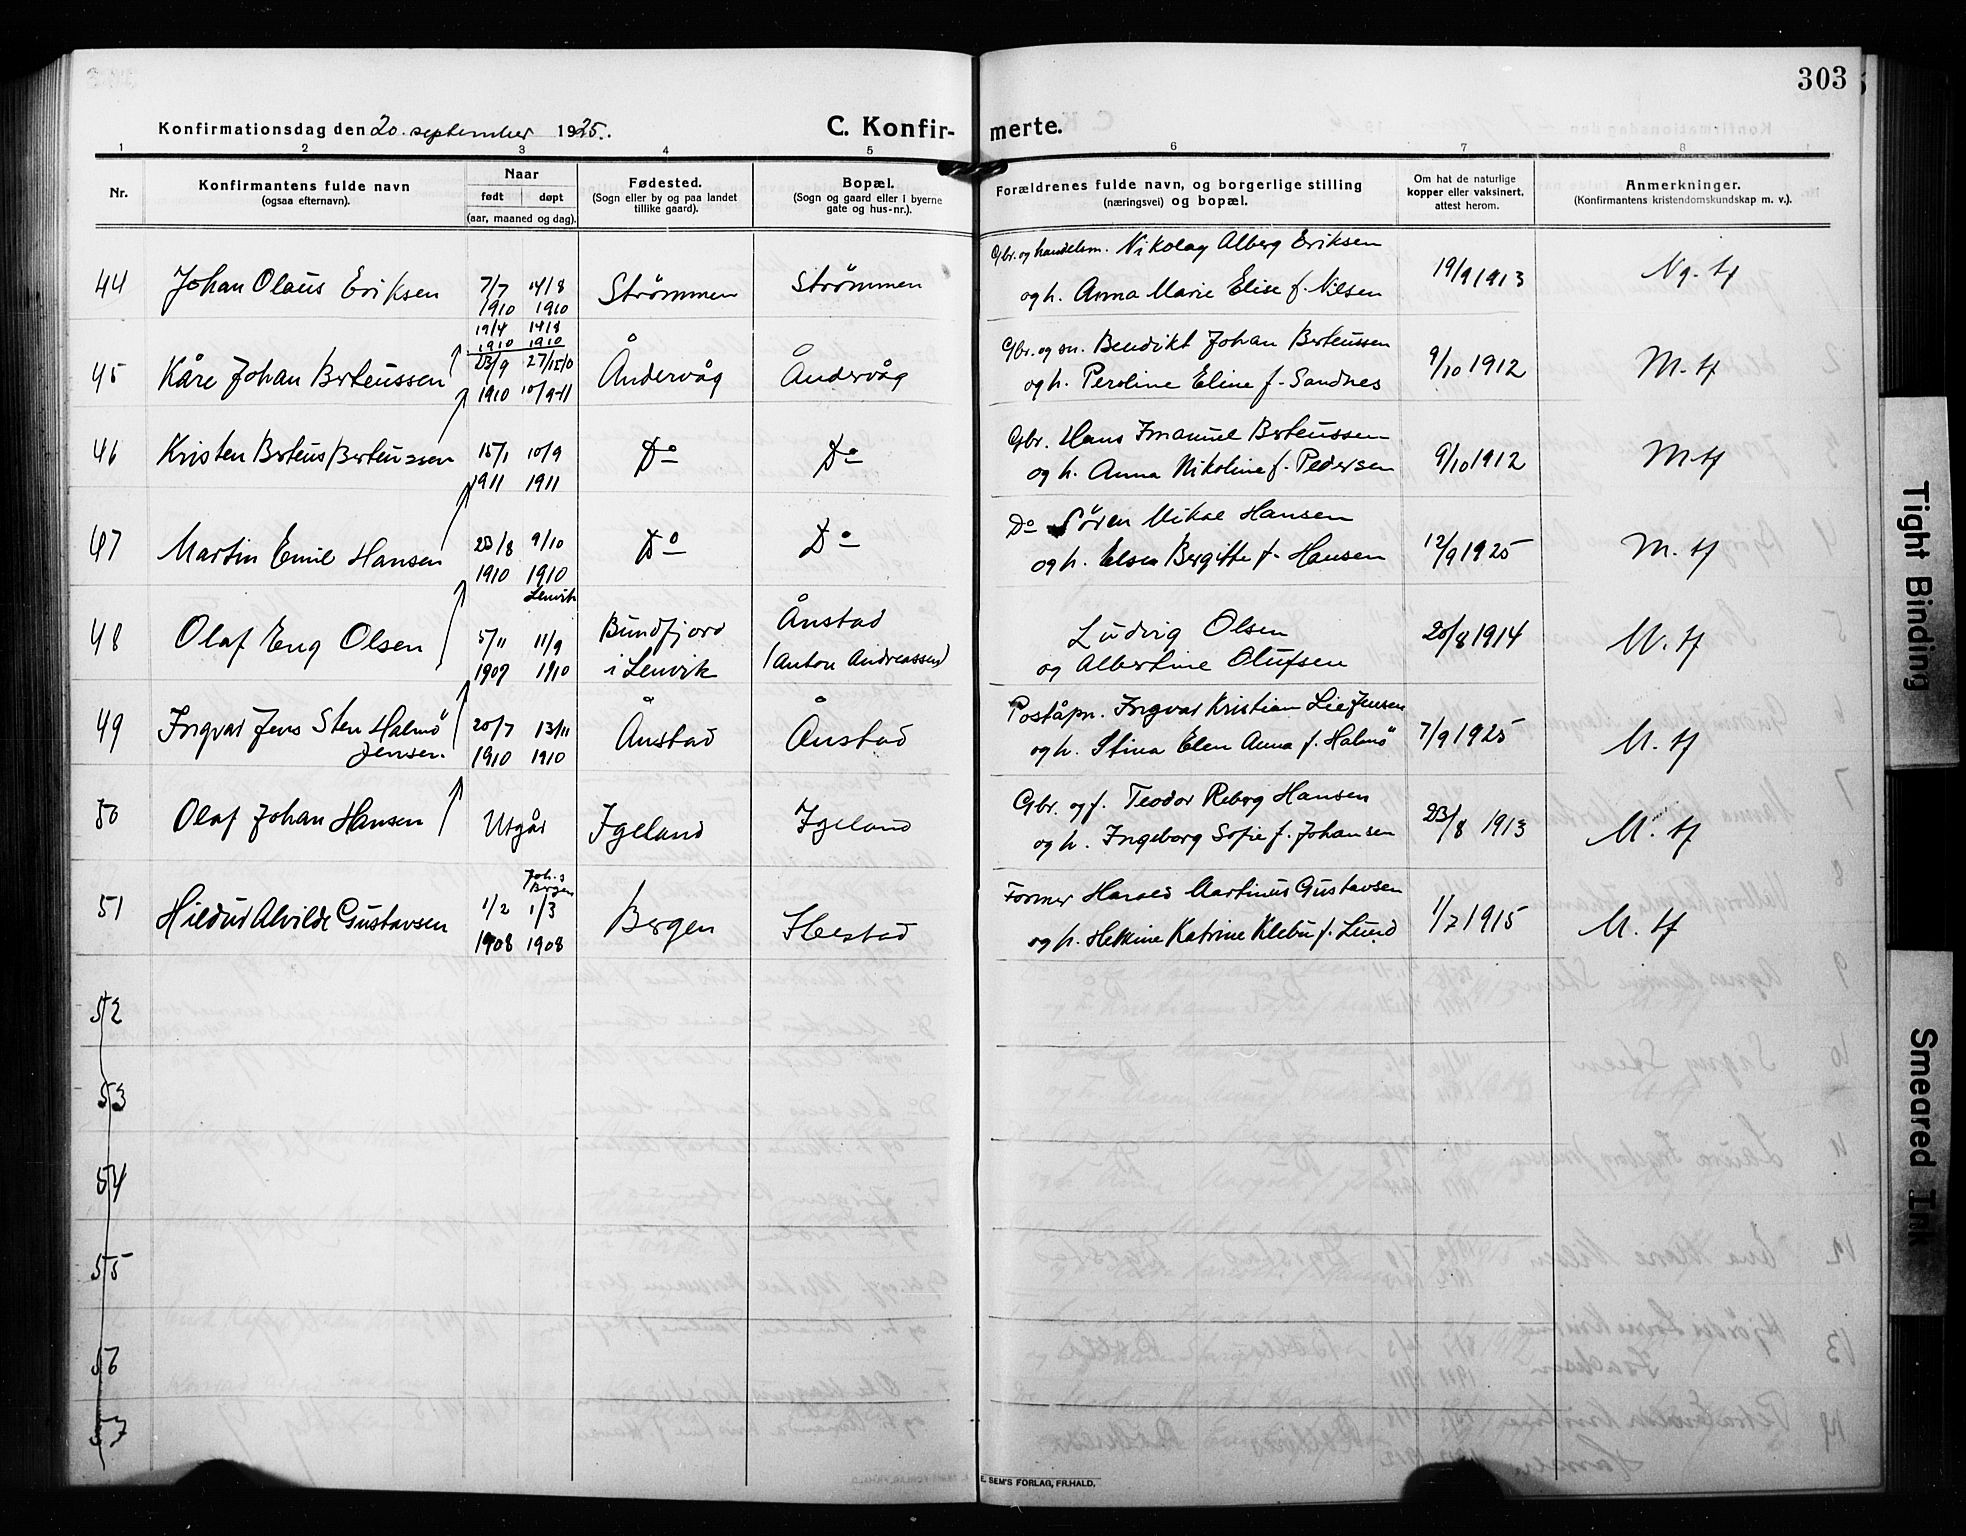 303
Konfirmationsdag den 20. september 1925.
C. Konfir- merte.
1 2 3 4 5 6 7 8
Nr.
Konfirmantens fulde navn
(ogsaa efternavn).
Naar
født døpt
(aar, maaned og dag).
Fødested.
(Sogn eller by og paa landet
tillike gaard).
Bopæl.
(Sogn og gaard eller i byerne
gate og hus-nr.).
Forældrenes fulde navn, og borgerlige stilling
(næringsvei) og bopæl.
Om hat de naturlige
kopper eller vaksinert,
attest herom.
Anmerkninger.
(Konfirmantens kristendomskundskap m. v.).
44 Johan Olaus Eriksen
7/7 14/8
1910 1910
Strømmen
Strømmen
Gbr. og handelsm. Nikolay Alberg Eriksen
og h. Anna Marie Elise f. Nilsen
19/9 1913
Ng. tf
19/4 14/8
1910 1910
45 Kåre Johan Berteussen
23/9 27/11 1510
1910 10/9-11
Åndervåg
Åndervåg
Gbr. og sn. Bendikt Johan Berteussen
og h. Peroline Eline f. Sandnes
9/10 1912
M. tf
46 Kristen Berteus Berteussen
15/1 10/9
1911 1911
Do
Do
Gbr. Hans Imanuel Berteussen
og h. Anna Nikoline f. Pedersen
9/10 1912
M tf
47 Martin Emil Hansen
23/8 9/10
1910 1910
Do
Do
Do Søren Mikal Hansen
og h. Elsa Bergitte f. Hansen
12/9 1925
M. tf
Lenvik
48 Olaf Eng Olsen
5/11 11/9
1909 1910
Bundfjord
i Lenvik
Ånstad
(Anton Andreassen)
Ludvig Olsen
og Albertine Olufsen
20/8 1914
M. tf
49 Ingvar Jens Sten Halmø
Jensen.
20/7 13/11
1910 1910
Ånstad
Ånstad
Poståpn. Ingvar Kristian Lie Jensen
og h. Stina Elen Anna f. Halmø
7/9 1925
M. tf
50 Olaf Johan Hansen
Utgår
Igeland
Igeland
Gbr. og f. Teodor Reberg Hansen
og h. Ingeborg Sofie f. Johansen
23/8 1913
M. tf
Joh.s
Bergen
51 Hildur Alvilde Gustavsen
1/2 1/3
1908 1908
Bergen
Former Harald Martinus Gustavsen
og h. Katrine Klebu f. Lund
1/7 1915
M. tf
52
53
54
55
56
57
E. SEM'S FORLAG, FR.HALD.
Tight Binding
Smeared Ink